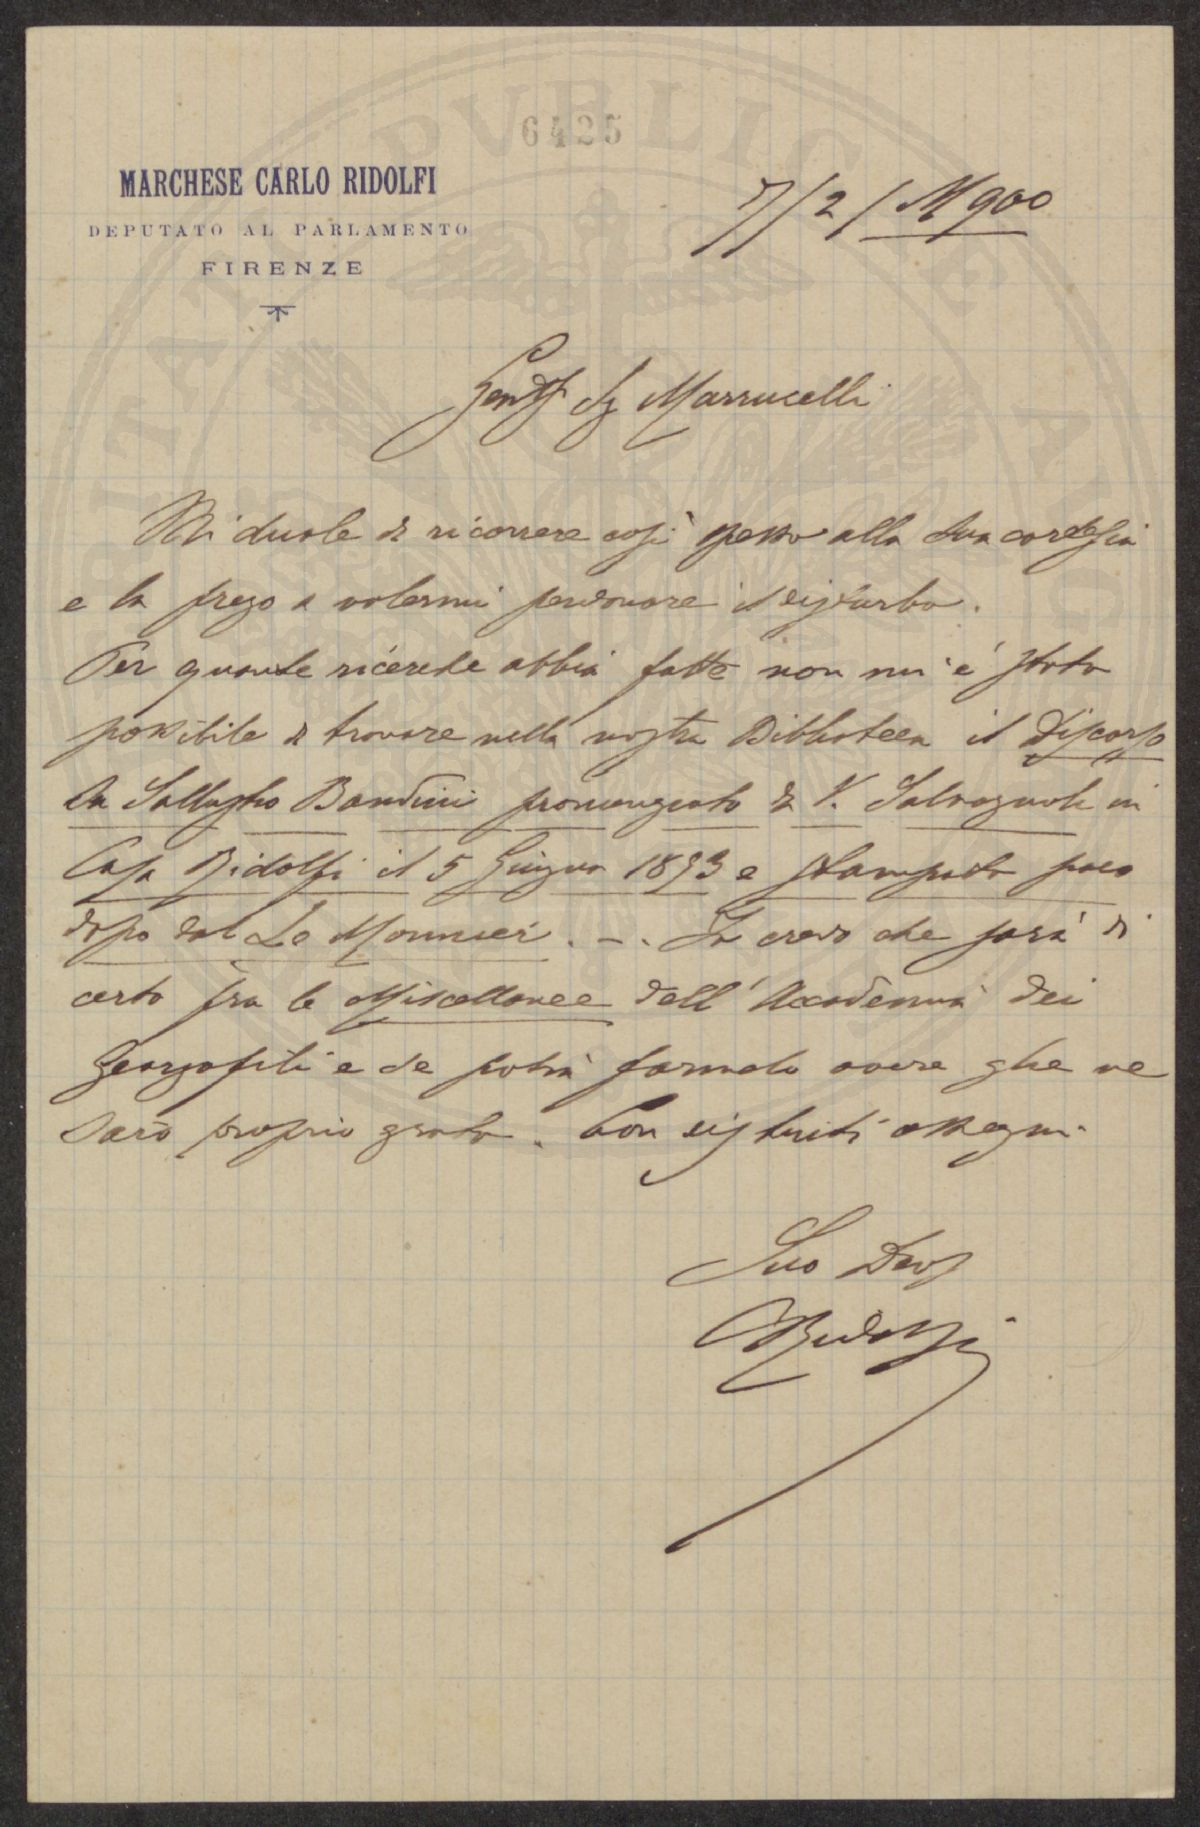 6425
MARCHESE CARLO RIDOLFI
DEPUTATO AL PARLAMENTO
FIRENZE
7/2/M900
Sg Marrucelli
Mi duole di ricorrere così spesso alla Sua cortesia
e la prego a volermi perdonare il disturbo.
Per quante ricerche abbia fatte non mi è stato
possibile di trovare nella nostra Biblioteca il Discorso
su Sallustio Bandini pronunziato da V. Salvagnoli in
Casa Ridolfi il 5 Giugno 1833 e stampato poco
dopo dal Le Monnier. - . Io credo che sarà di
certo fra le Miscellanee dell'Accademia dei
Georgofili e se potrà farmelo avere glie ne
sarò proprio grato. Con distinti ossequi.
Suo Dev
CRidolfi